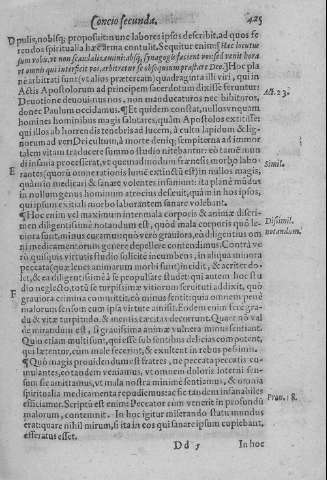 Concio secunda. 425
D pulis, nobisq; propositũ nunc labores ipsos describit, ad quos fe
rendos spiritualia hæc arma contulit. Sequitur enim: [Hæc locutus
sum vobis, vt non scandalizemini: absq; synagogis facient vos: sed venit hora
vt omnis qui interficit vos, arbitretur se obsequium præstare Deo.] Hoc pla
nè arbitrati sunt (vt alios præteream) quadraginta illi viri, qui in
Actis Apostolorum ad principem sacerdotum dixisse feruntur:
Act. 23.
Deuotione deuouimus nos, non manducaturos nec bibituros,
donec Paulum occidamus. ¶ Et quidem constat, nullos vnquam
homines hominibus magis salutares, quàm Apostolos extitisse:
qui illos ab horrendis tenebris ad lucem, à cultu lapidum & lig-
norum ad veri Dei cultum, à morte deniq; sempiterna ad immor-
talem vitam traducere summo studio nitebantur: eò tamẽ mun
di insania processerat, vt quemadmodum frænesis morbo labo-
Simil.
E rantes (quorũ omne rationis lumẽ extinctũ est) in nullos magis,
quàm in medicari & sanare volentes insaniunt: ita planè mũdus
in nullum genus hominum atrocius desæuit, quàm in hos ipsos,
qui ipsum exitiali morbo laborantem sanare volebant.
¶ Hoc enim vel maximum inter mala corporis & animæ discri-
Dissimil.
men diligentissimè notandum est, quòd mala corporis quò le-
notandum.
uiora sunt, minus curamus: quò verò grauiora, eò diligentius om
ni medicamentorum genere depellere contendimus. Contrà ve
rò, quisquis virtutis studio solicitè incumbens, in aliqua minora
peccata (quæ leues animarum morbi sunt) incidit, & acriter do-
let, & ea diligentissimè à se propulsare studet: qui autem hoc stu
dio neglecto, totũ se turpissimæ vitiorum seruituti addixit, quò
F grauiora crimina committit, eò minus sentit: quia omnem penè
malorum sensum cum ipsa virtute amisit. Eodem enim ferè gra-
du & vitæ turpitudo, & mentis cæcitas decurrunt. Quare nõ val
de mirandum est, si grauissima animæ vulnera minus sentiant.
Quin etiam multi sunt, qui esse sub sentibus delicias computent,
qui lætentur, cùm male fecerint, & exultent in rebus pessimis.
¶ Quò magis prouidendum est fratres, ne peccata peccatis cu-
mulantes, eo tandem veniamus, vt omnem doloris loterii sen-
sum sic amittamus, vt mala nostra minimè sentiamus, & omnia
spiritualia medicamenta repudiemus: ac sic tandem insanabiles
efficiamur. Scriptũ est enim: Peccator cum venerit in profundũ
Prou. 18.
malorum, contemnit. In hoc igitur miserando statu mundus
erat: quare nihil mirum, si ita in eos qui sanare ipsum cupiebant,
efferatus esset.
D d 5 In hoc